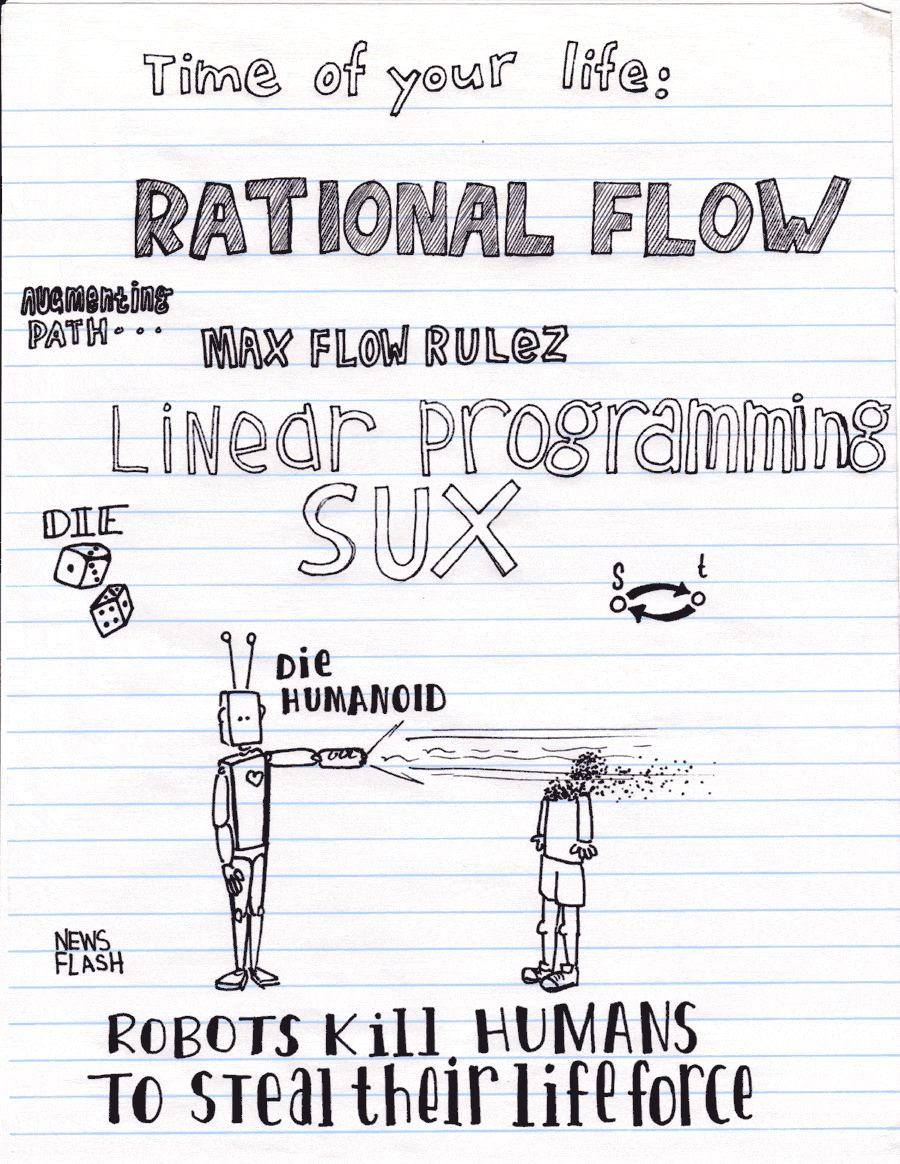 Time of your life:
RATIONAL FLOW
AUGmenting
PATH...
MAX FLOW RULeZ
LiNear programming
SUX
DIE
s t
Die
HUMANOID
NEWS
FLASH
ROBOTS Kill HUMANS
TO STeal their lifeforce